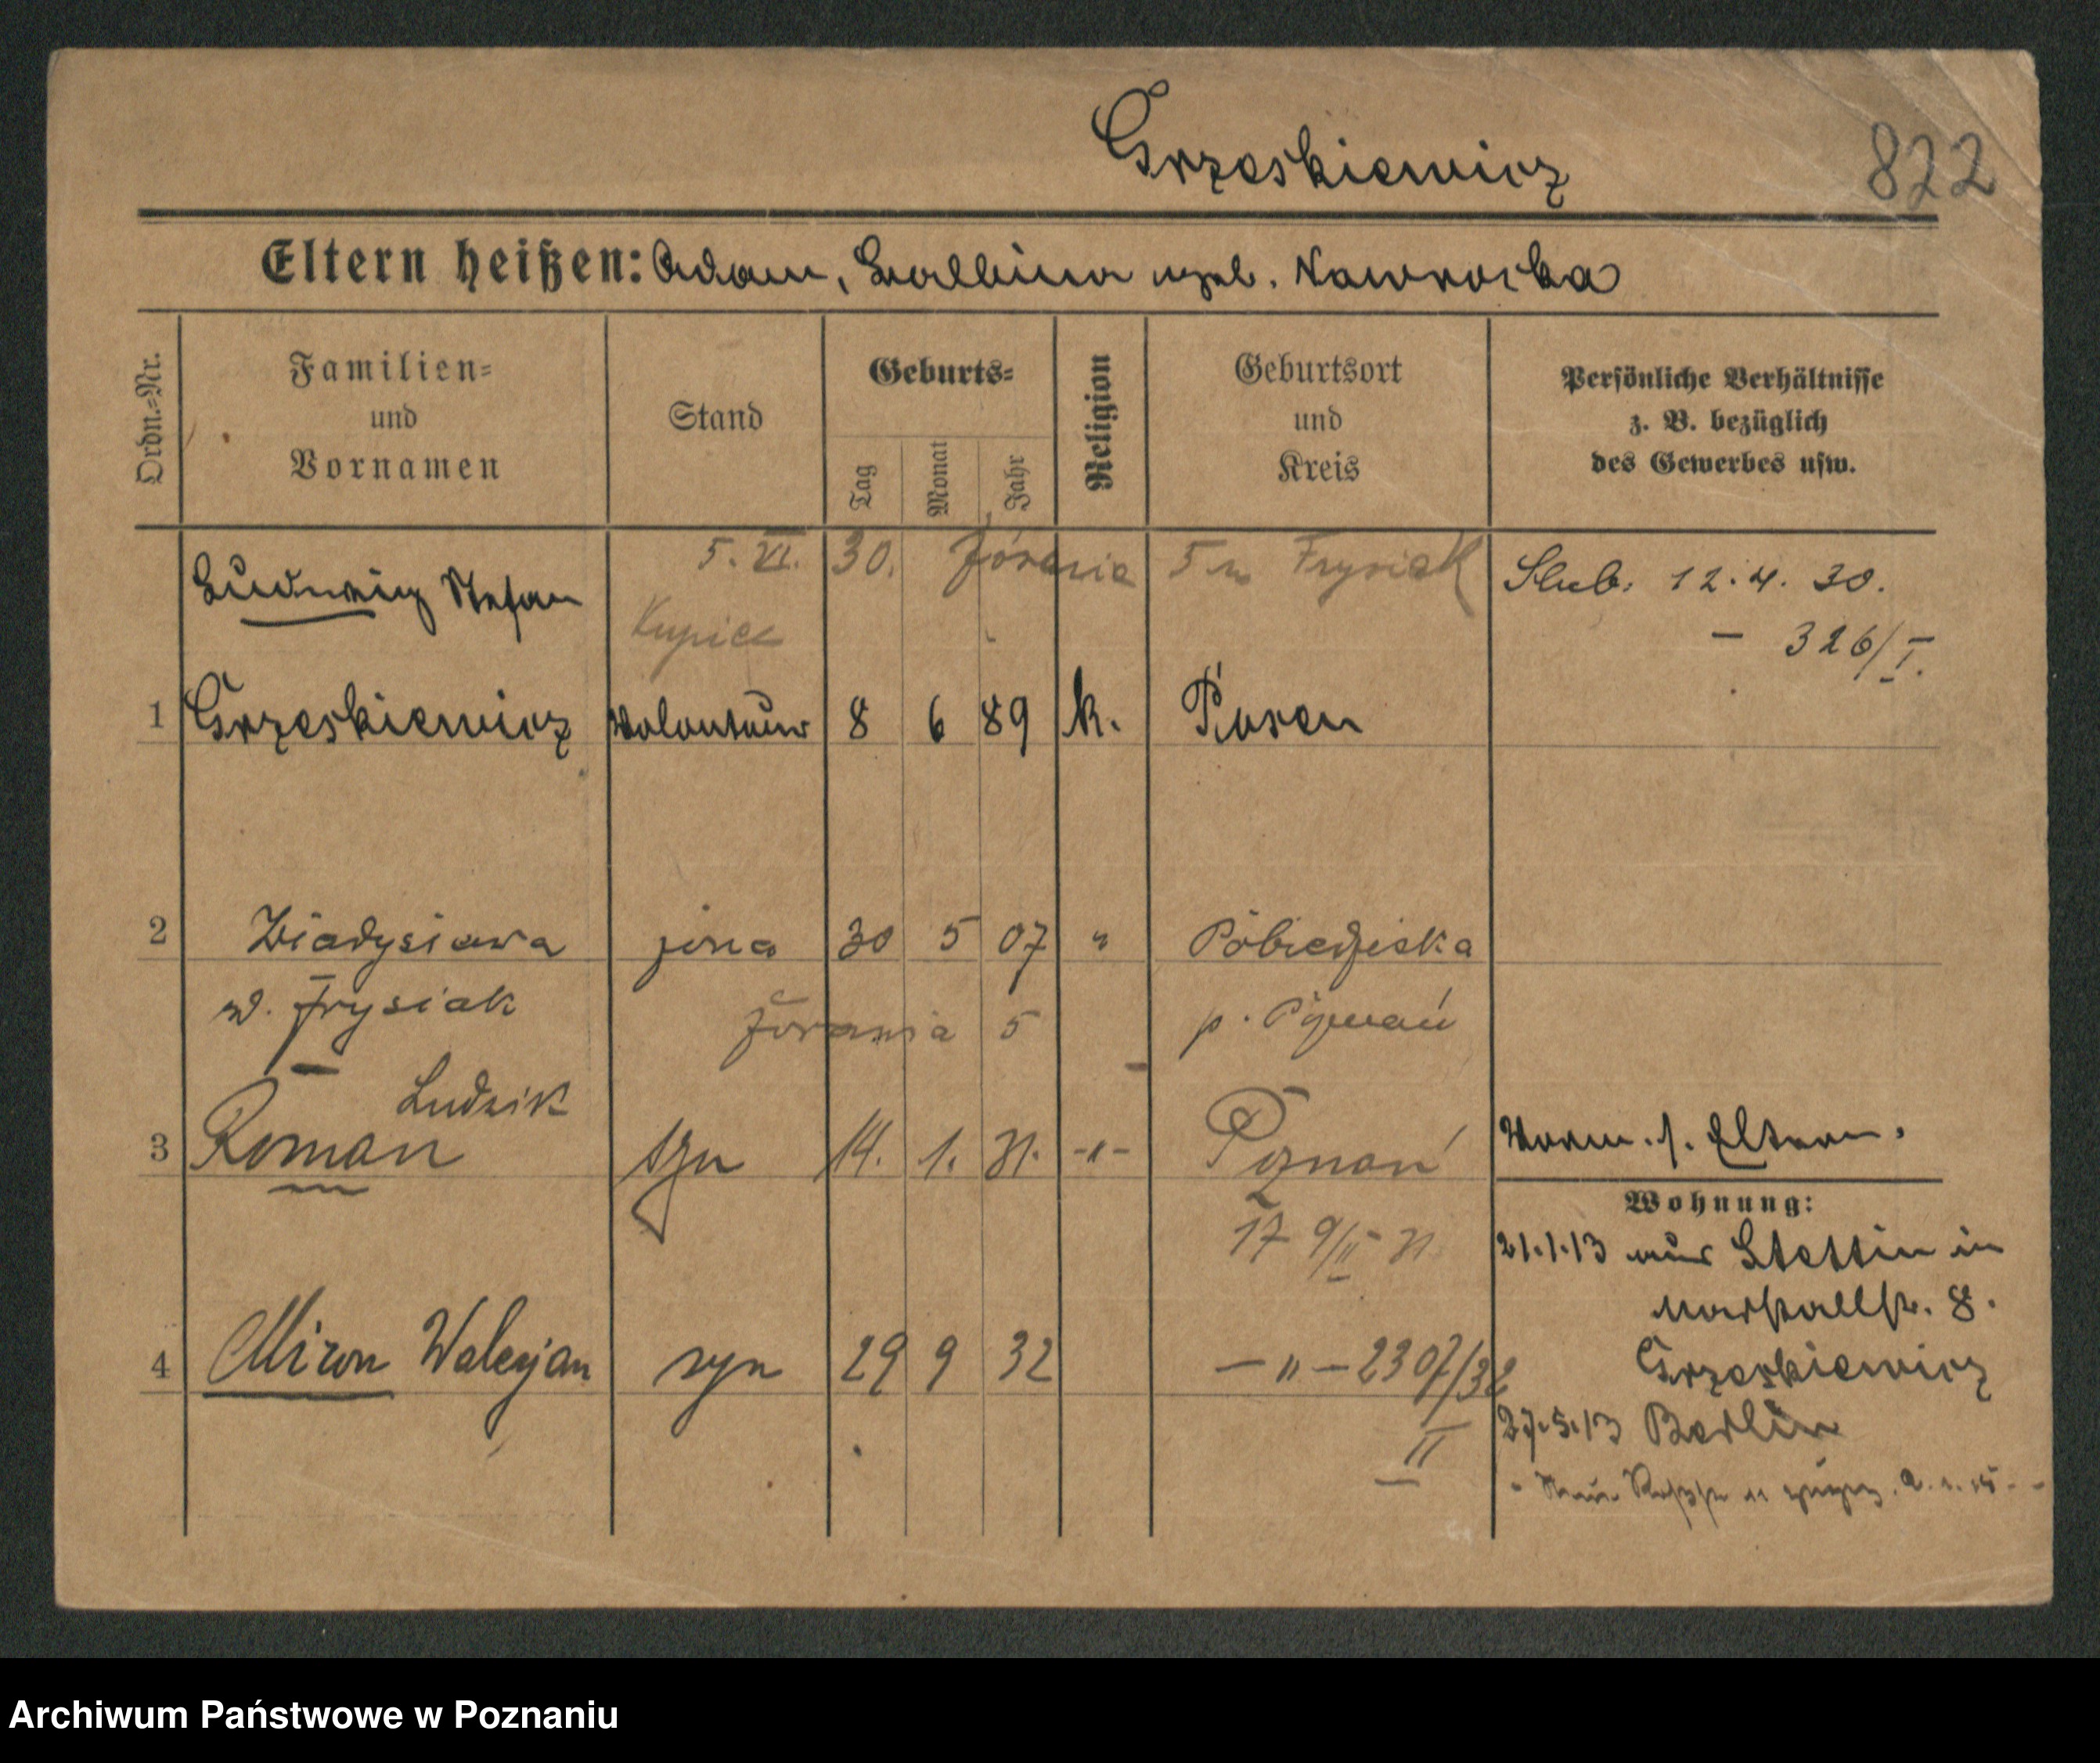 Grzeskiewicz
822
Eltern heißen: Adam, Balbina geb. Nawrocka
Ordn.=Nr.
Familien=
und
Vornamen
Stand
Geburts=
Tag
Monat
Jahr
Religion
Geburtsort
und
Kreis
Persönliche Verhältnisse
z. B. bezüglich
des Gewerbes usw.
5. VI. 30. Żórawia 5 m Frysiak
Ludwig Stefan
Kupiec
Ślub: 12.4. 30.
– 326/I.
1 Grzeskiewicz Volontair 8 6 89 k. Posen
2 Władysława żona 30 5 07 " Pobiedziska
w. Frysiak
Żórawia 5
p. Poznań
Ludwik
3 Roman syn 14. 1. 31. -"- Poznań
17 9/II 31
Wohnung:
21.1.13 aus Stettin in
Marstallstr. 8.
Grzeskiewicz
4 Miron Walerjan syn 29 9 32 – " – 2307/32
II
27.5.13 Berlin